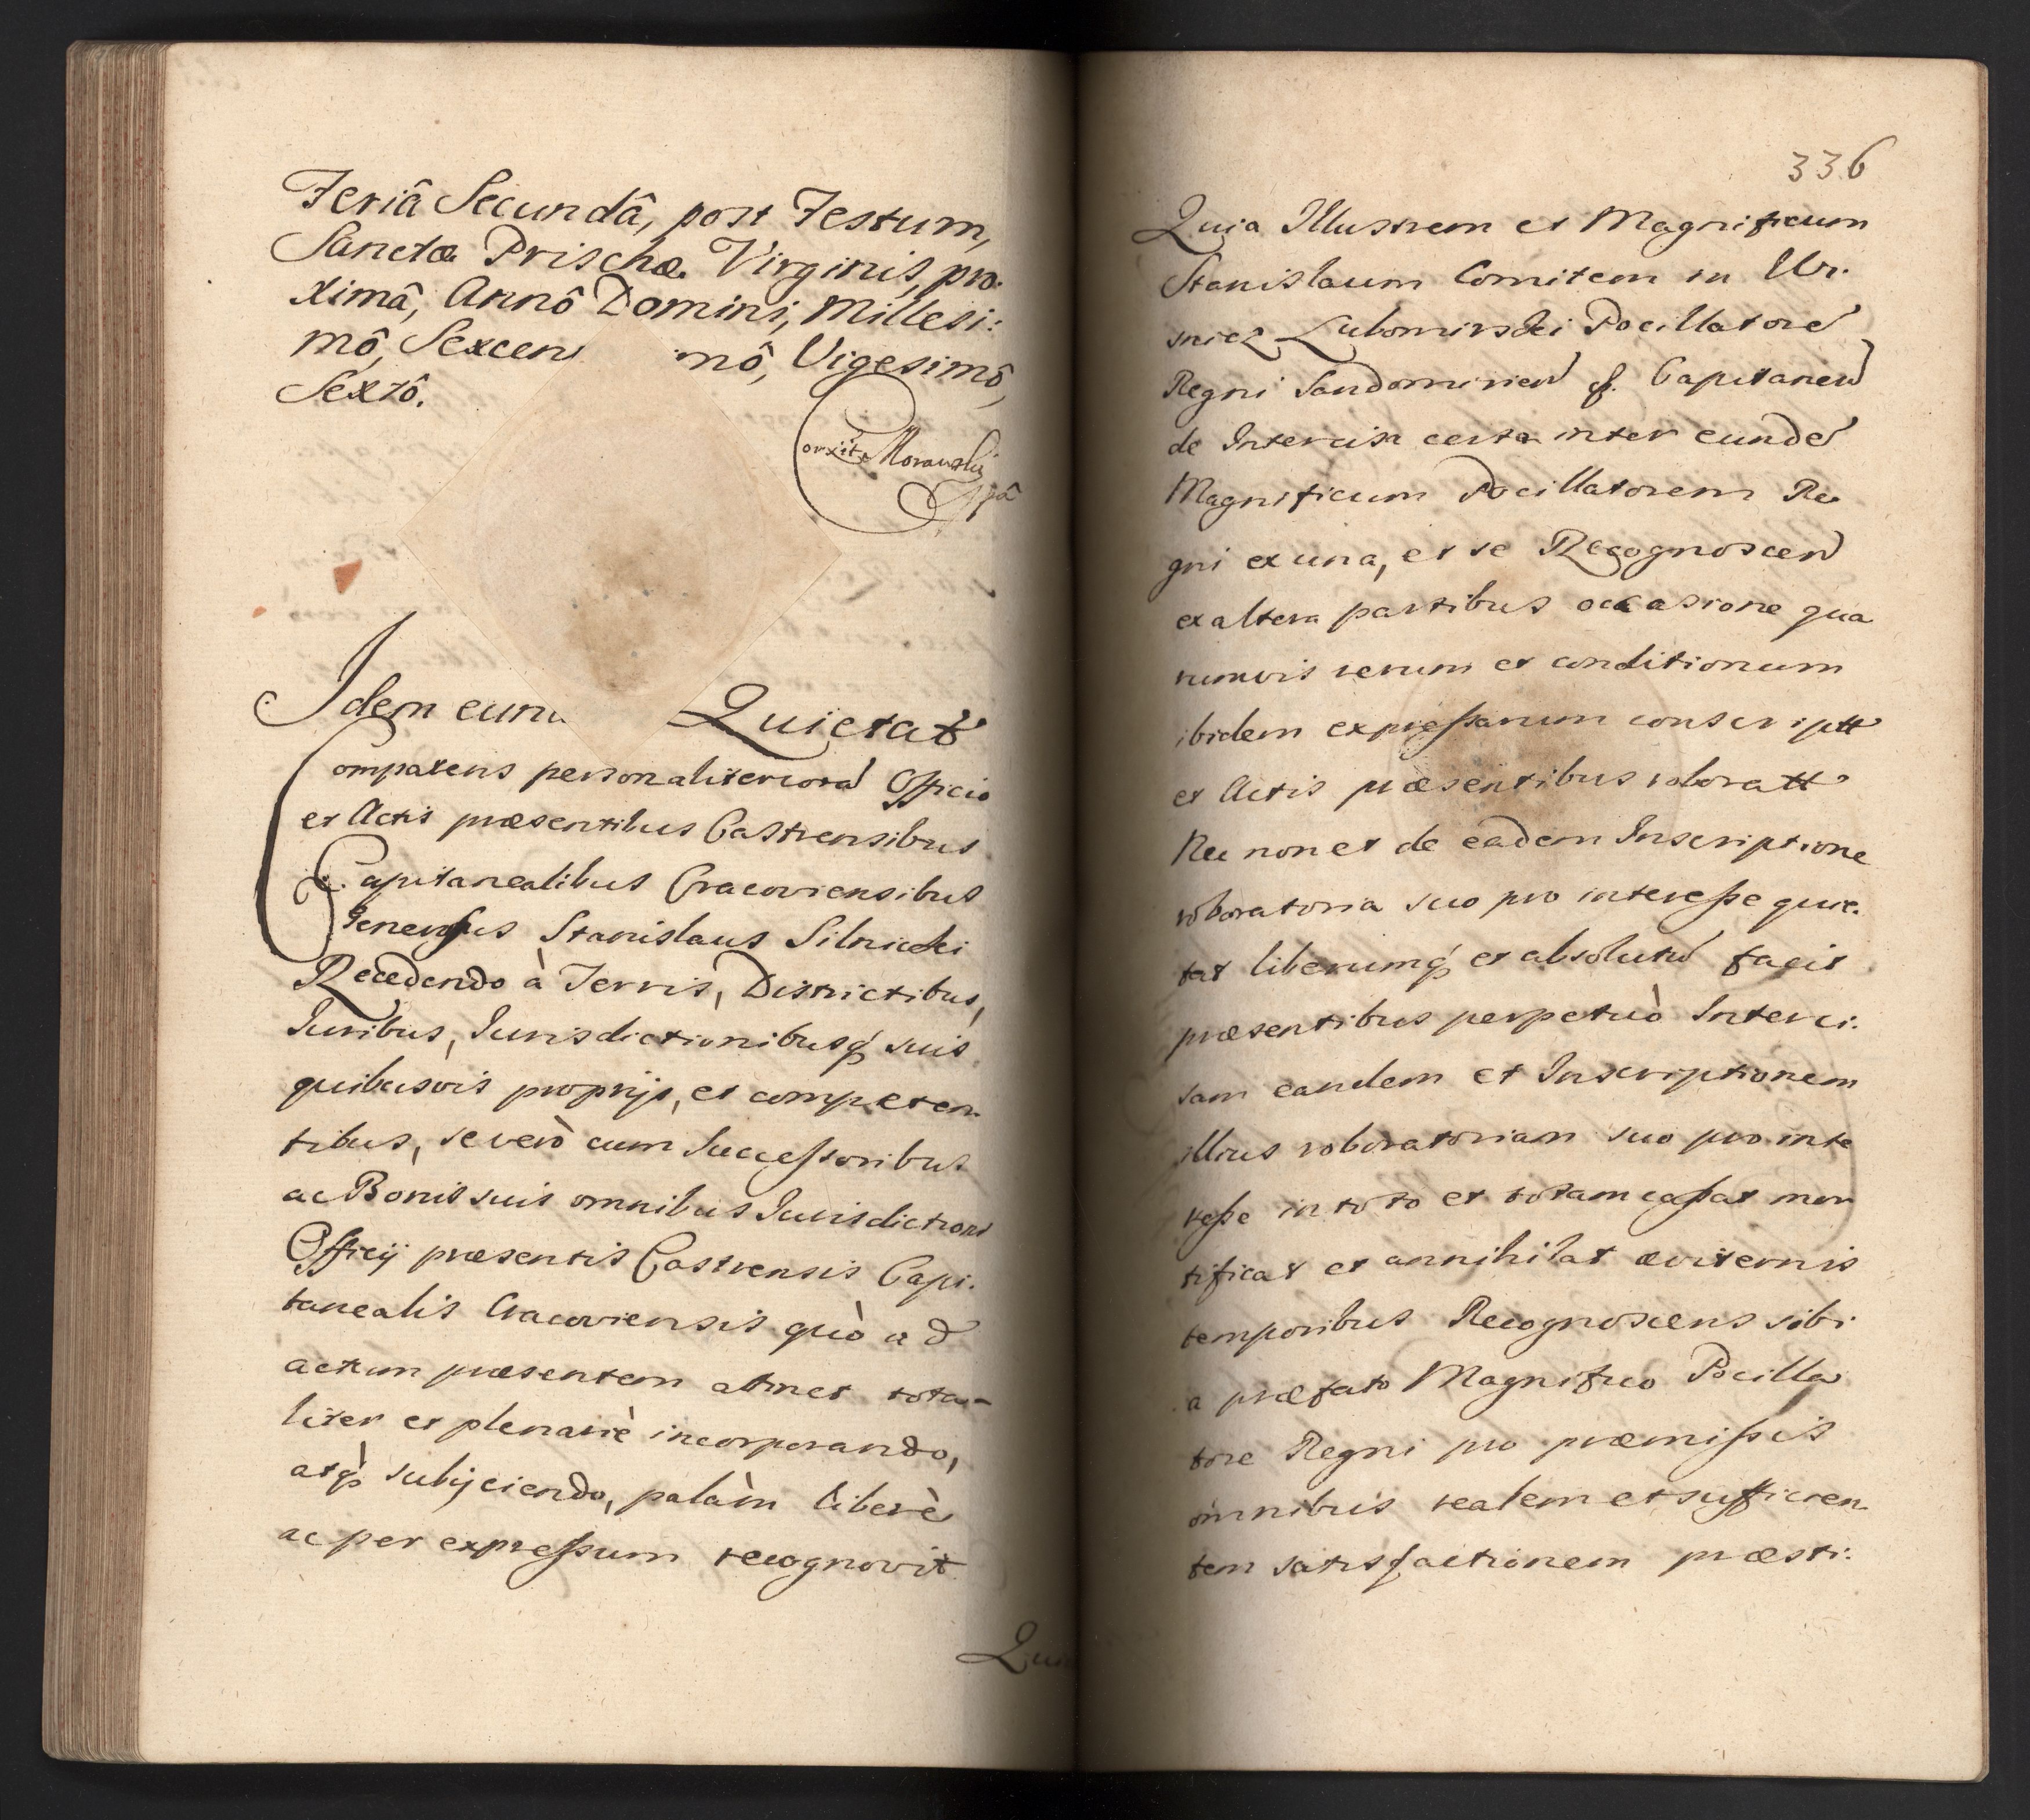 Feriâ Secundâ, post Festum,
Sanctæ Prischæ Virginis, pro:
ximâ, Annô Domini, Millesi:
mô, Sexcen mô, Vigesimô,
Sextô.
Corxit Morawski
mpâ
Idem eun Quietat
Comparens personaliter corad Officio
et Actis præsentibus Castrensibus
Capitanealibus Cracoviensibus
Generosus Stanislaus Silnicki
Recedendo à Terris, Districtibus,
Iuribus, Iurisdictionibusq suis
quibusvis proprijs, et competen
tibus, se verò cum Successoribus
ac Bonis suis omnibus Iurisdictioni
Officij præsentis Castrensis Capi:
tanealis Cracoviensis quò ad
actum præsentem attinet tota-
liter et plenariè incorporando,
atq subijciendo, palàm liberè
ac per expressum recognovit
Quia
336
Quia Illustrem et Magnificum
Stanislaum Comitem in Wi:
snicz Lubomirski Pocillatore
Regni Sandomirien &. Capitaneu
de Intercisa certa inter eunde
Magnificum Pocillatorem Re
gni ex una, et se Recognoscen
ex altera partibus occasione qua
rumvis rerum et conditionum
ibidem expressarum conscriptt
et Actis præsentibus roboratt
Nec non et de eadem Inscriptione
roboratoria suo pro interesse quie:
tat liberumq et absolutu facit
præsentibus perpetuò Interci:
sam eandem et Inscriptionem
illius roboratoriam suo pro inte
resse in toto et totam cassat mor
tificat et annihilat æviternis
temporibus Recognoscens sibi
a præfato Magnifico Pocilla
tore Regni pro præmissis
omnibus realem et sufficien
tem satisfactionem præsti: